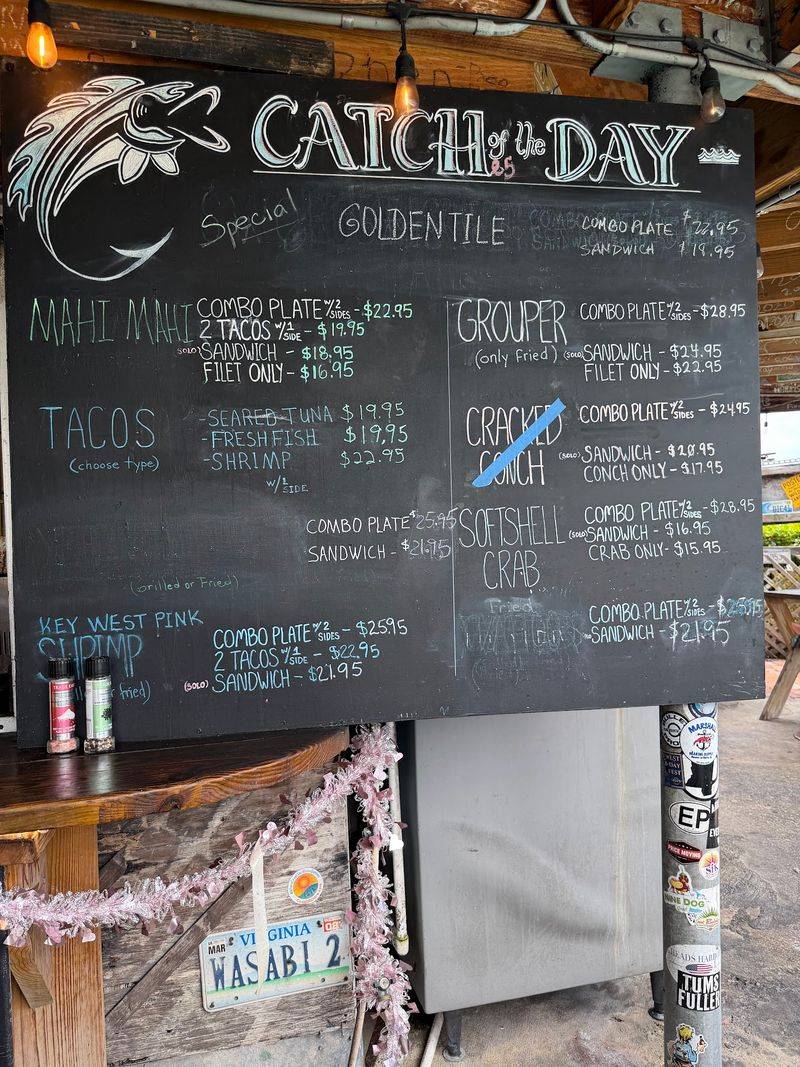 CATCH of the DAY
Special GOLDEN TILE COMBO PLATE $22.95
SANDWICH $19.95
MAHI MAHI COMBO PLATE W/2 SIDES - $22.95
2 TACOS W/1 SIDE - $19.95
(SOLO) SANDWICH - $18.95
FILET ONLY - $16.95
GROUPER COMBO PLATE W/2 SIDES - $28.95
(only fried) (SOLO) SANDWICH - $24.95
FILET ONLY - $22.95
TACOS
(choose type)
- SEARED TUNA $19.95
- FRESH FISH $19.95
- SHRIMP $22.95
W/1 SIDE
CRACKED CONCH COMBO PLATE W/2 SIDES - $24.95
(SOLO) SANDWICH - $20.95
CONCH ONLY - $17.95
COMBO PLATE $25.95
SANDWICH - $21.95
(Grilled or Fried)
SOFTSHELL CRAB COMBO PLATE W/2 SIDES - $28.95
(SOLO) SANDWICH - $16.95
CRAB ONLY - $15.95
Fried
KEY WEST PINK
SHRIMP
fried)
COMBO PLATE W/2 SIDES - $25.95
2 TACOS W/1 SIDE - $22.95
(SOLO) SANDWICH - $21.95
COMBO PLATE W/2 SIDES -
SANDWICH - $21.95
MAR VIRGINIA
WASABI 2
EP
PRICE MOVING
TUMS
FULLER